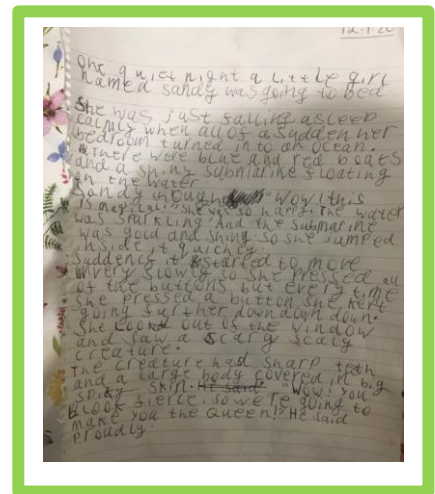 12.1.20
One quiet night a little girl
named sandy was going to bed
She was just falling asleep
calmly when all of a sudden her
bedroom turned in to an ocean.
There were blue and red boats
and a shiny submarine floating
on the water
Sandy thought "Wow! this
is magical!" She was so happy. The water
was sparkling. And the submarine
was gold and shiny. So she jumped
inside it quickly.
Suddenly it started to move
very slowly so she pressed all
of the buttons but every time
she pressed a button she kept
going further down down down.
She look out of the window
and saw a scary scaly
creature.
The creature had sharp teeth
and a large body covered in big
spiky skin. He said "Wow! you
look fierce, so we're going to
make you the Queen!" He said
proudly.